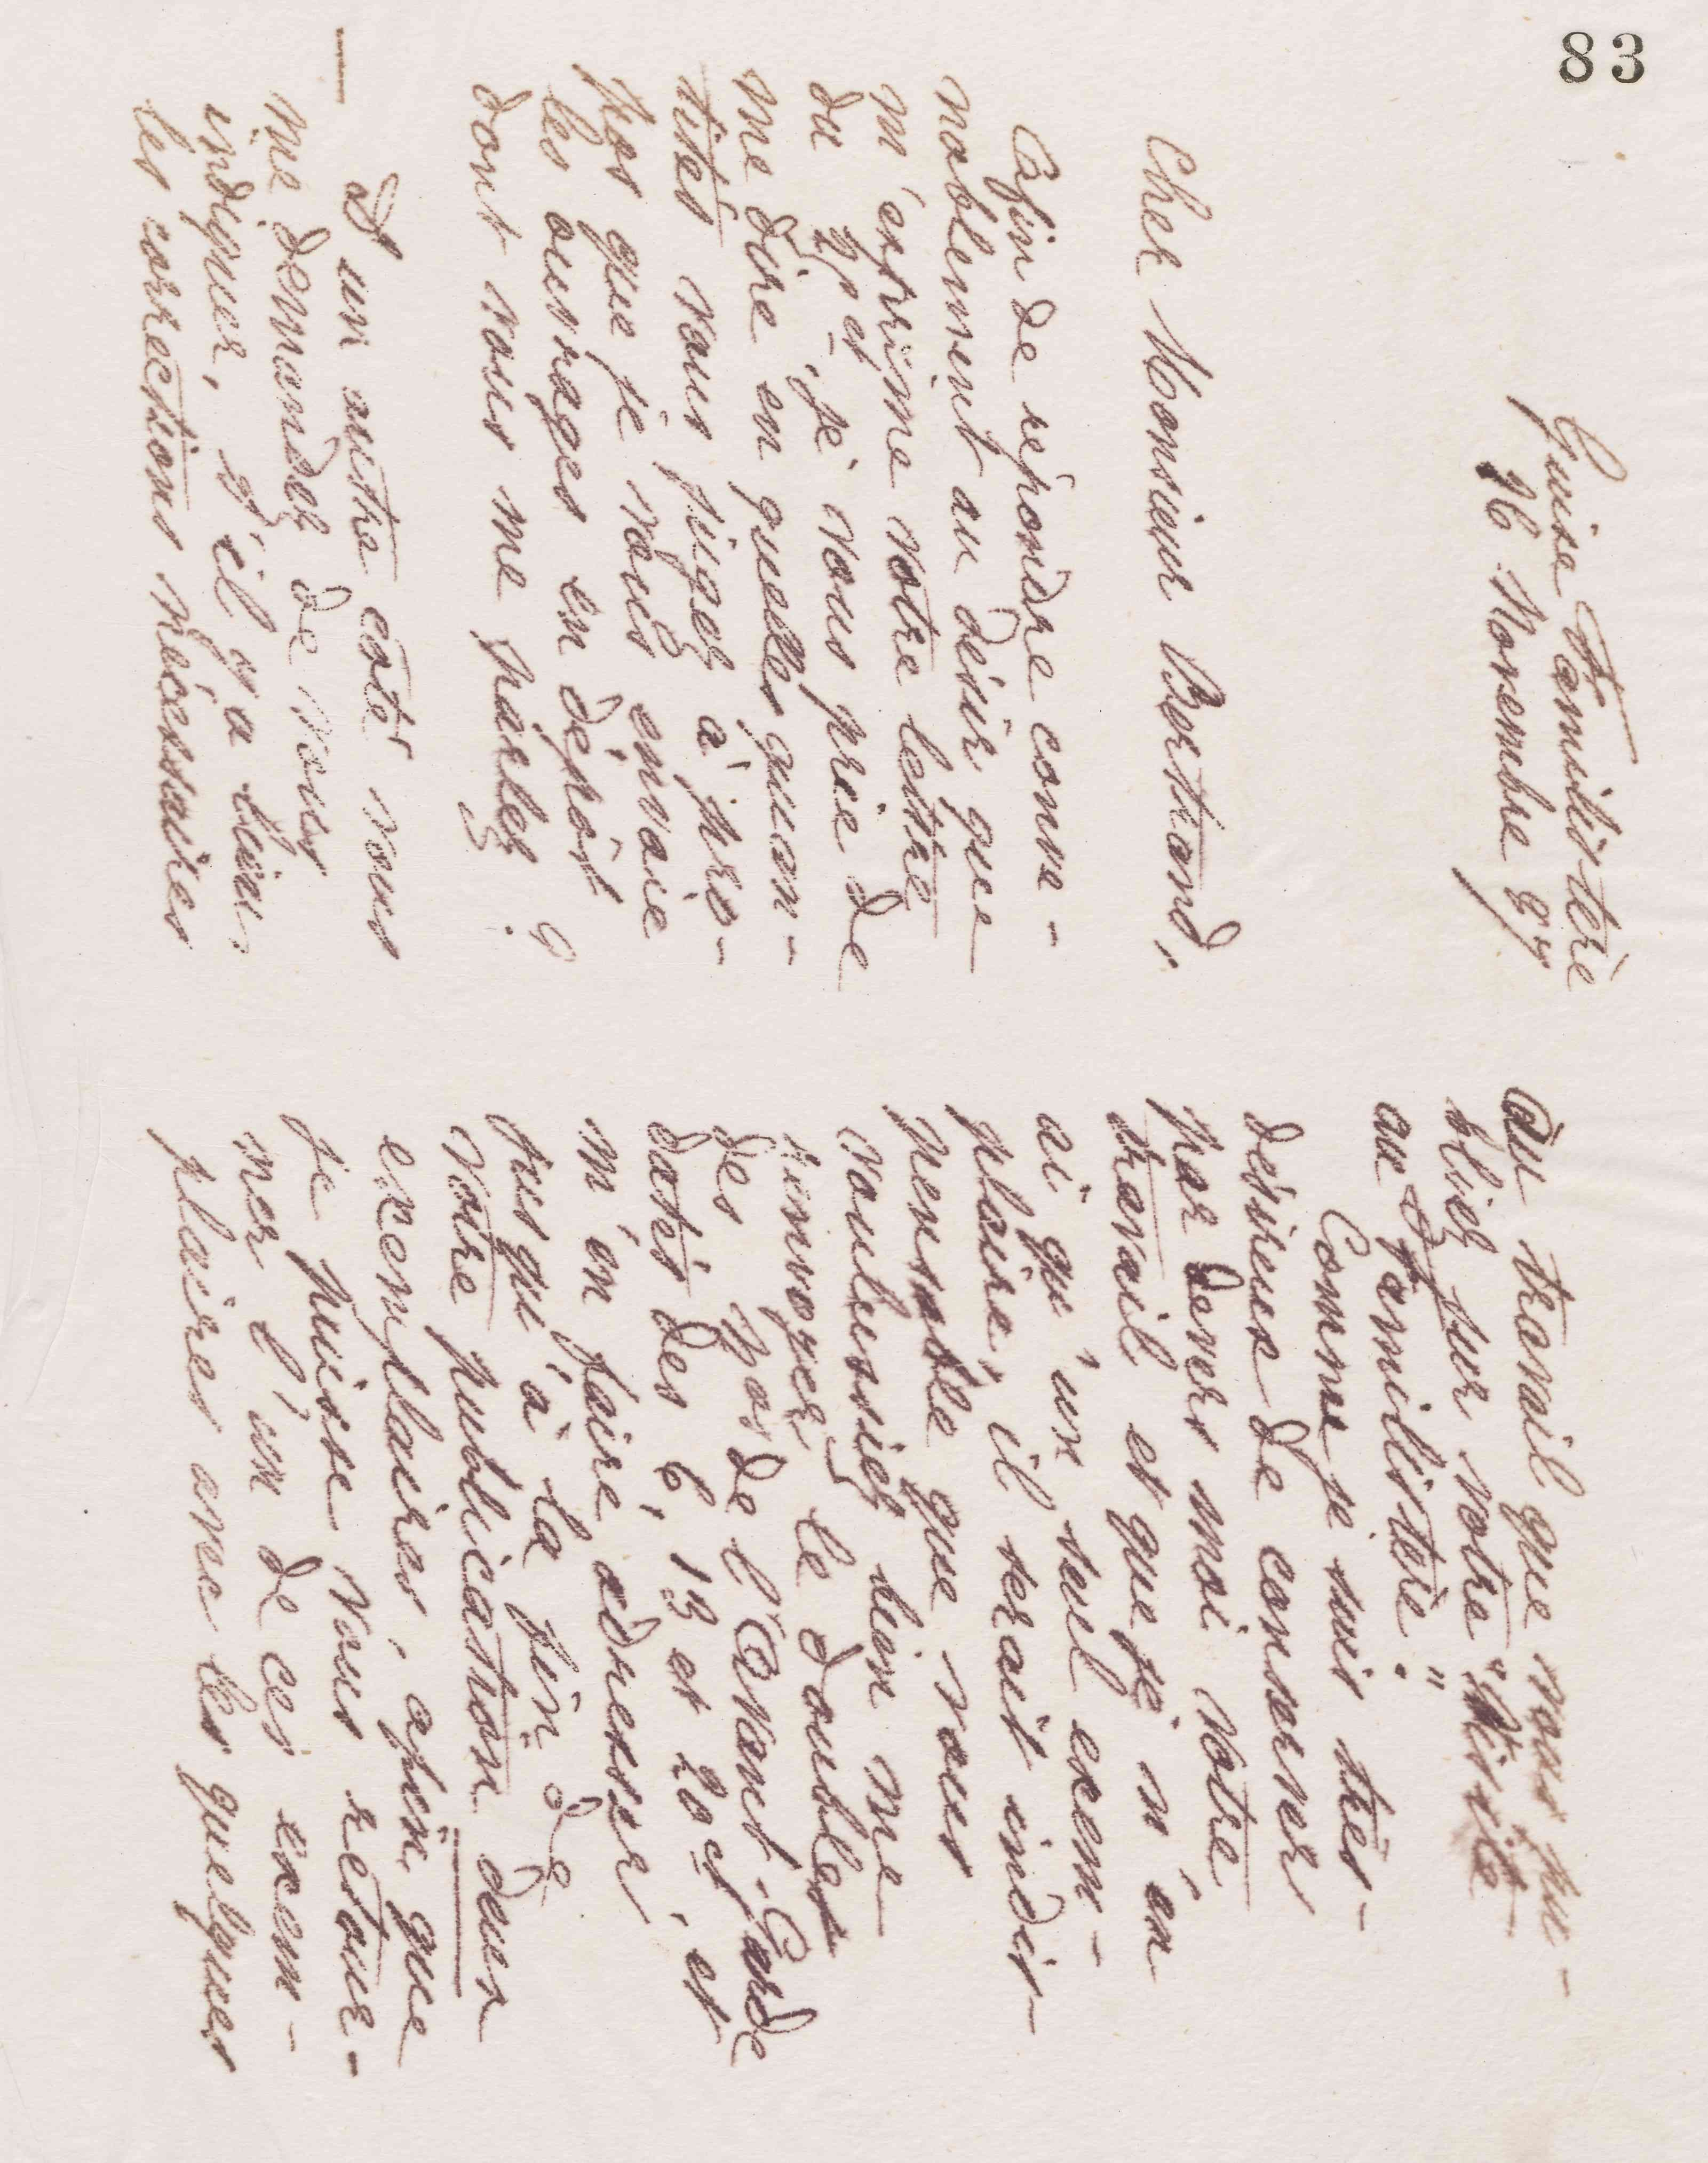 83
Guise Familistère
26 Novembre 87
Cher Monsieur Bertrand,
Afin de répondre conve-
nablement au désir que
m'exprime votre lettre
du 25 ct, je vous prie de
me dire en quelles quan-
tités vous jugez à pro-
pos que je vous envoie
les ouvrages en dépôt
dont vous me parlez ?
D'un autre côté vous
me demandez de vous
indiquer, s'il y a lieu,
les corrections nécessaires
au travail que vous pu-
bliez sur votre "Visite
au Familistère".
Comme je suis très-
désireux de conserver
par devers moi votre
travail et que je n'en
ai qu'un seul exem-
plaire, il serait indis-
pensable que vous
voulussiez bien me
renvoyer le double
des nos de l'Avant-Garde
datés des 6, 13 et 20 ct, et
m'en faire adresser,
jusqu'à la fin de
votre publication deux
exemplaires, afin que
je puisse vous retour-
ner l'un de ces exem-
plaires avec les quelques